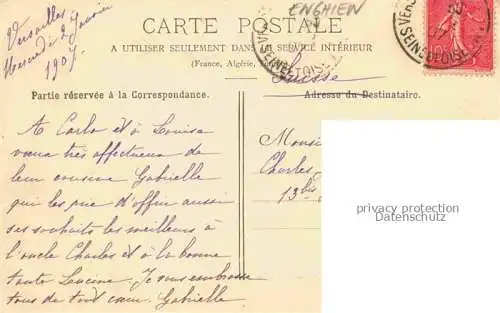 Versailles
Mercredi 2 Janvier
1907.
ENGHIEN
CARTE POSTALE
A UTILISER SEULEMENT DANS LE SERVICE INTÉRIEUR
(France, Algérie,
Suisse
Partie réservée à la Correspondance.
Adresse du Destinataire.
A Carlo et à Louisa
vœux très affectueux de
leur cousine Gabrielle
qui les prie d'offrir aussi
ses souhaits les meilleurs à
l'oncle Charles et à la bonne
tante Lucine. Je vous embrasse
tous de tout cœur. Gabrielle
Monsi
Charles
13bis
privacy protection
Datenschutz
SEINE ET OISE